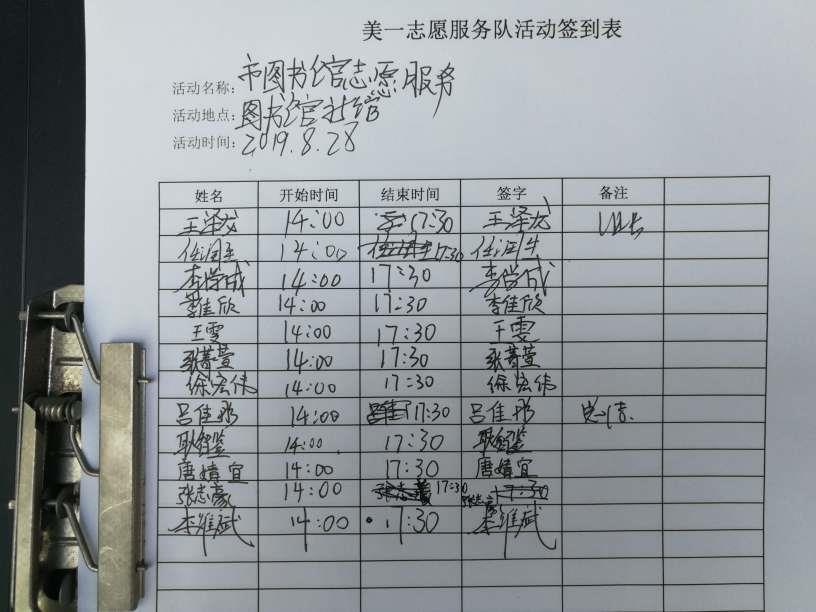 美一志愿服务队活动签到表
活动名称：市图书馆志愿服务
活动地点：图书馆社馆
活动时间：2019.8.28
姓名 开始时间 结束时间 签字 备注
王泽龙 14:00 17:30 王泽龙
任润生 14:00 17:30 任润生
李学成 14:00 17:30 李学成
李佳欣 14:00 17:30 李佳欣
王雯 14:00 17:30 王雯
张萱 14:00 17:30 张萱
徐宏伟 14:00 17:30 徐宏伟
吕佳彤 14:00 17:30 吕佳彤
耿 14:00 17:30 耿
唐婧宜 14:00 17:30 唐婧宜
张志豪 14:00 17:30 张志豪 17:30
李维斌 14:00 17:30 李维斌